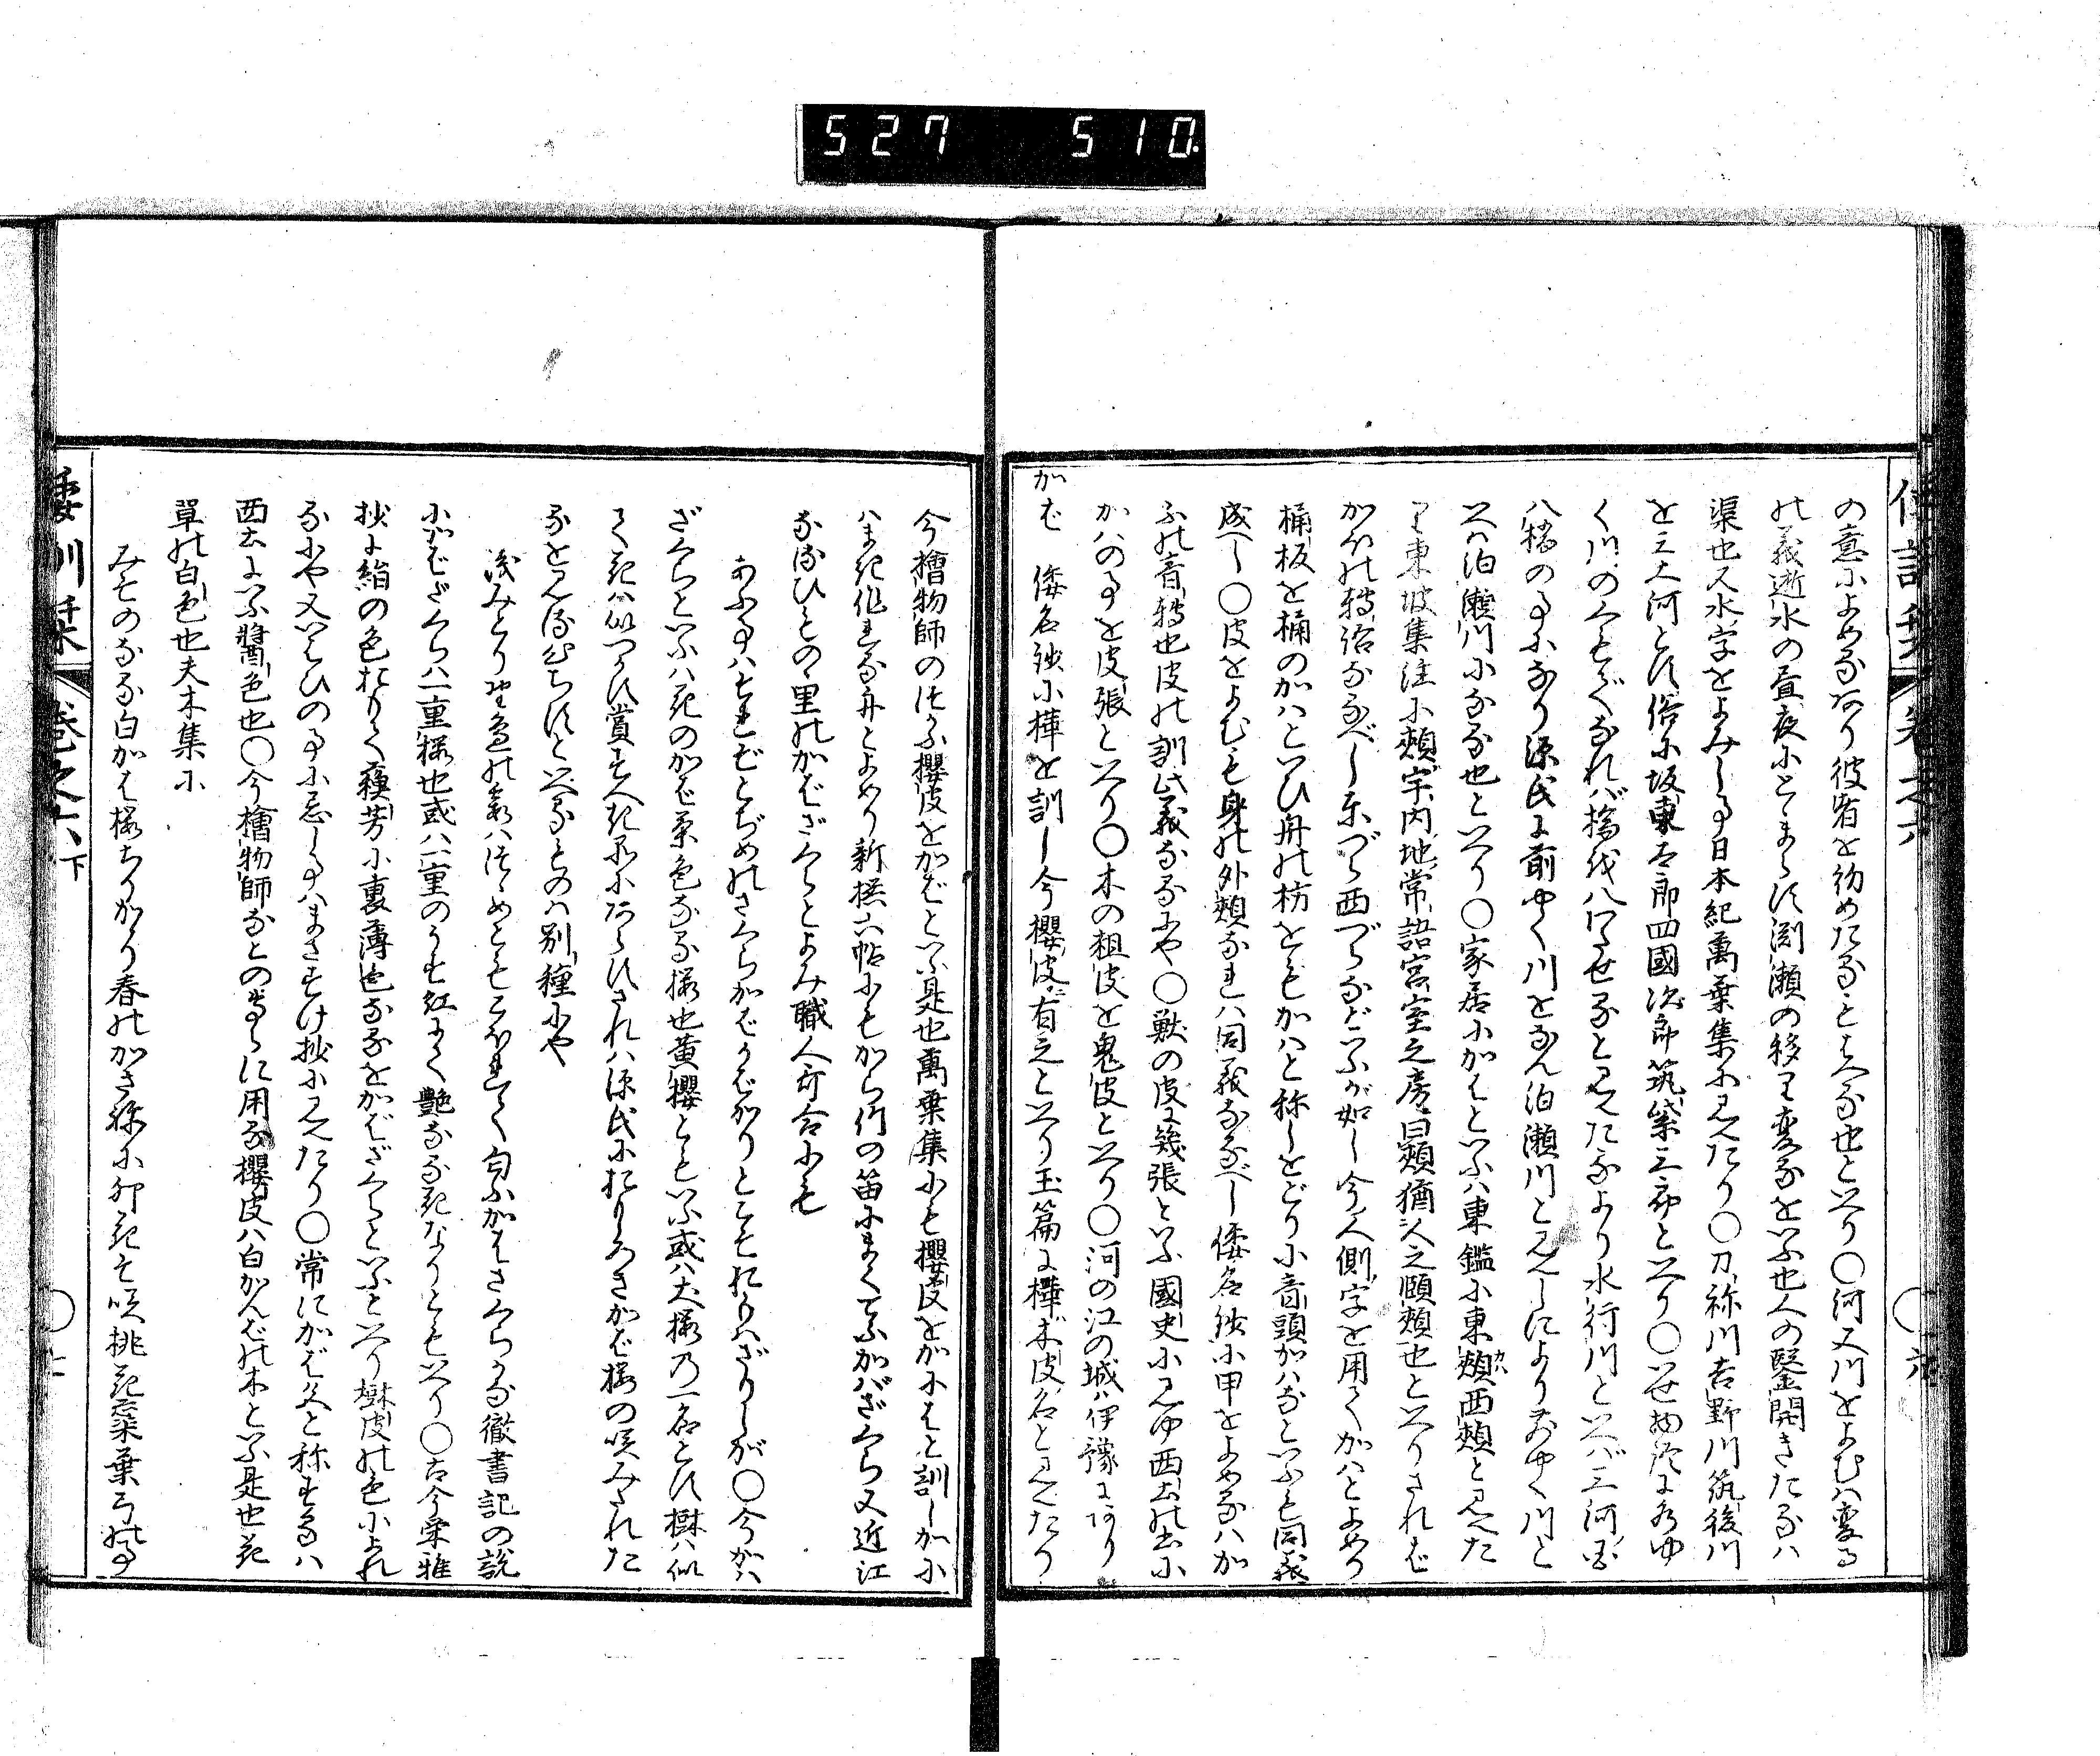 527 510
の意によめるなり彼者を初めたるともいへる也といへり○河又川をよむハ変る
の義逝水の昼夜にとゝまらす渕瀬の移り変るをいふ也人の鑿開きたるハ
渠也又水字をよみし事日本紀萬葉集に見えたり○刀祢川吉野川筑後川
を三大河とす俗に坂東太郎四國次郎筑紫三郎といへり○いせ物語に水ゆ
く川のくもでなれバ橋を八わたせるとみえたるより水行川といへバ三河国
八橋の事になり源氏に前ゆく川をなん泊瀬川とみえしによりおゆく川と
いへバ泊瀬川になる也といへり○家居にかはといふハ東鑑に東頬西頬と見えた
り東坡集注に頬字内地常語宮室之旁曰頬猶人之頤頬也といへりされば
かほの轉語なるべし東づら西づらなどいふが如し今人側字を用てかハとよめり
桶板を桶のかハといひ舟の枋をもかハと称しをどり小音頭かハなといふも同義
成べし○皮をよむも身の外頬なれハ同義なるべし倭名鈔に甲をよめるハか
ふの音轉也皮の訓此義なるにや○獣の皮に幾張といふ國史に見ゆ西土の書に
かハの事を皮張といへり○木の粗皮を鬼皮といへり○河の江の城ハ伊豫にあり
かば　倭名鈔に樺を訓し今櫻皮有之といへり玉篇に樺木皮名と見えたり
倭訓栞　巻之六下
今檜物師のつかふ櫻皮をかばといふ是也萬葉集にも櫻皮をかにはと訓しかに
ハまき作れる舟とよめり新撰六帖にもから竹の笛にまくてふかバざくら又近江
なるひものゝ里のかばざくらとよみ職人歌合にも
あふ事ハもれどとぢめのさくらかばうばかりとこそおもハざりしが○今かバ
ざくらといふハ花のかば茶色なる桜也黄櫻ともいふ或ハ犬桜の一名とす樹ハ似
て花ハ似つかず賞すべき品にあらずされハ源氏におもしろきかば桜の咲みたれた
るをみる心ちすといへるものハ別種にや
浅みとり野邊の霞ハつゝめともこほれて匂ふかはさくらかな徹書記の説
にかばざくらハ一重桜也或ハ一重のうす紅にて艶なる花なりともいへり○古今栄雅
抄に絹の色おもて蘓芳に裏薄色なるをかばざくらといふといへり樺皮の色によれ
るにや又いはひの事に忌し事ハますけ抄にみえたり○常にかば色と称するハ
西土にいふ醤色也○今檜物師などの専らに用る櫻皮ハ白かんばの木といふ是也花
草の白色也夫木集に
みその なる白かは桜ちりかかり春のかさねに卯花そ咲桃花蘂葉弓の事